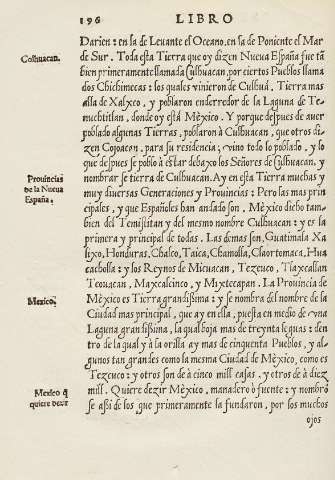 196 LIBRO
Darien: en la de Levante el Oceano, en la de Poniente el Mar
Culhuacan.
de Sur. Toda esta Tierra que oy dizen Nueva España fue tã
bien primeramente llamada Culhuacan, por ciertos Pueblos llama
dos Chichimecas: los quales vinieron de Culhuá. Tierra mas
alla de Xalxco, y poblaron enderredor de la Laguna de Te-
nuchtitlan, donde oy está Mèxico. Y porque despues de aver
poblado algunas Tierras, poblaron à Culhuacan, que otros di-
zen Cojoacan, para su residencia; vino todo lo poblado, y lo
que despues se poblò à estar debaxo los Señores de Culhuacan, y
nombrarse tierra de Culhuacan. Ay en esta Tierra muchas y
Provincias
de la Nueua
España.
muy diversas Generaciones y Provincias: Pero las mas prin
cipales, y que Españoles han andado son, Mèxico dicho tam-
bien del Temistitan y del mesmo nombre Culhuacan: y es la
primera y principal de todas. Las demas son, Guatimala Xa
lixco, Honduras, Chalco, Taica, Chamolla, Claortomaca, Hua
cacholla: y los Reynos de Micuacan, Tezcuco, Tlaxcallan
Teouacan, Maxcalcinco, y Mixtecapan. La Provincia de
Mexico.
Mèxico es Tierra grandissima: y se nombra del nombre de la
Ciudad mas principal, que ay en ella, puesta en medio de vna
Laguna grandissima, la qual boja mas de treynta leguas: den
tro de la qual y à la orilla ay mas de cinquenta Pueblos, y al-
gunos tan grandes como la mesma Ciudad de Mèxico, como es
Tezcuco: y otros son de à cinco mill casas, y otros de à diez
Mexico q̃
quiere dezir
mill. Quiere dezir Mèxico, manadero ò fuente: y nombró
se assi de los que primeramente la fundaron, por los muchos
ojos